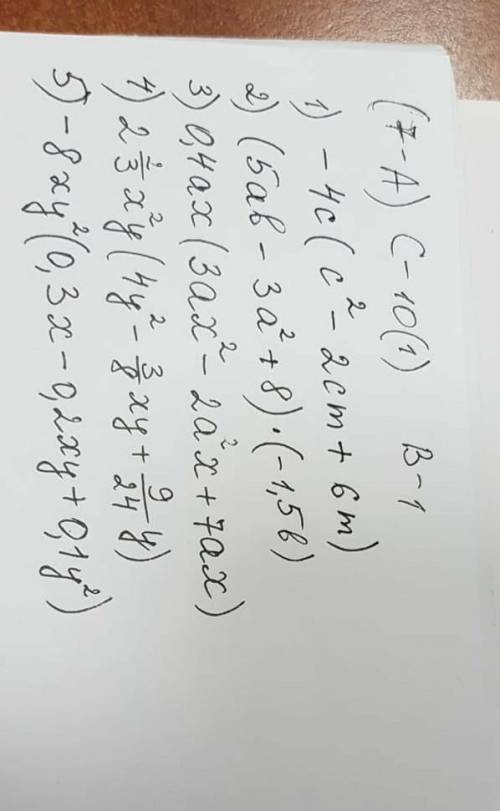 (7-А) С-10(1) В-1
1) -4c(c² - 2cm + 6m)
2) (5ab - 3a² + 8)·(-1,5b)
3) 0,4ax(3ax² - 2a²x + 7ax)
4) 2 2/3 x²y(4y² - 3/8 xy + 9/24 y)
5) -8xy²(0,3x - 0,2xy + 0,1y²)